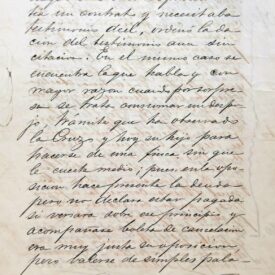 tia un contrato y necesitaba
testimonio de él, ordenó la da-
cion del testimonio aun sin
citacion. En el mismo caso se
encuentra la que habla y con
mayor razon cuando por sorpre-
sa se trata consumar un despo-
jo, trámite que ha observado
la Cruz y hoy su hijo para
hacerse de una finca sin que
le cueste medio; pues en la opo-
sicion hace presente la deuda
pero no declara estar pagada
si
y
acompañase boleta de cancelacion
era muy justa su oposicion,
pero valerse de simples pala-